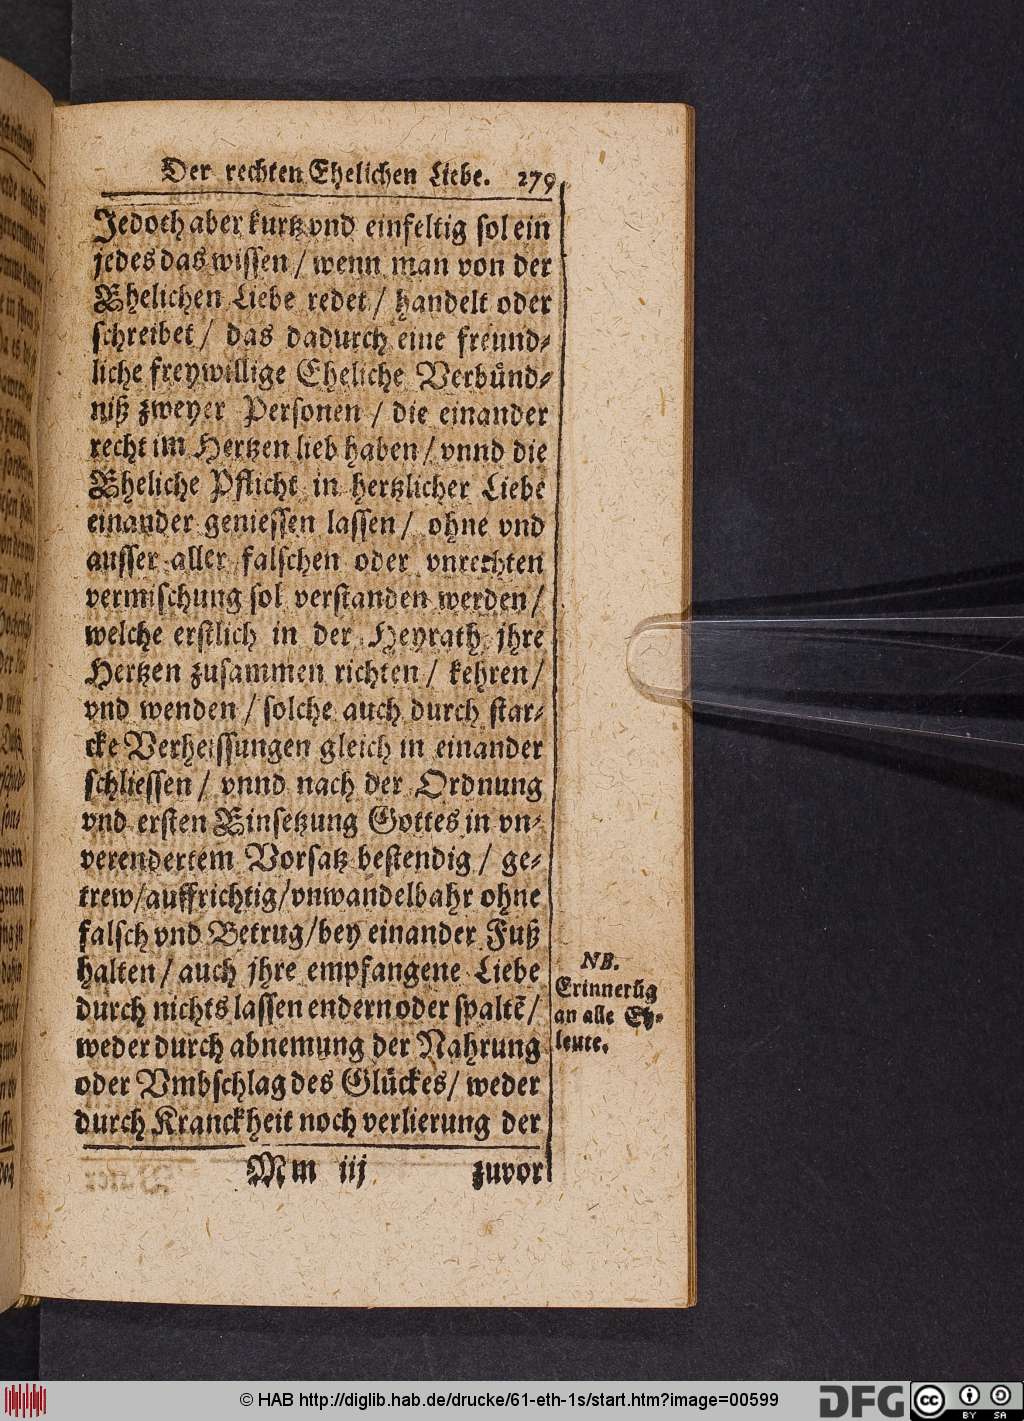 Der rechten Ehelichen Liebe. 279
Jedoch aber kurtz vnd einfeltig sol ein
jedes das wissen / wenn man von der
Ehelichen Liebe redet / handelt oder
schreibet / das dadurch eine freund-
liche freywillige Eheliche Verbünd-
niß zweyer Personen / die einander
recht im Hertzen lieb haben / vnnd die
Eheliche Pflicht in hertzlicher Liebe
einander geniessen lassen / ohne vnd
ausser aller falschen oder vnrechten
vermischung sol verstanden werden /
welche erstlich in der Heyrath jhre
Hertzen zusammen richten / kehren /
vnd wenden / solche auch durch star-
cke Verheissungen gleich in einander
schliessen / vnnd nach der Ordnung
vnd ersten Einsetzung Gottes in vn-
verendertem Vorsatz bestendig / ge-
trew / auffrichtig / vnwandelbahr ohne
falsch vnd Betrug / bey einander Fuß
halten / auch jhre empfangene Liebe
durch nichts lassen endern oder spaltē /
weder durch abnemung der Nahrung
oder Vmbschlag des Glückes / weder
durch Kranckheit noch verlierung der
NB.
Erinnerũg
an alle Eh-
leute.
Mm iij zuvor
© HAB http://diglib.hab.de/drucke/61-eth-1s/start.htm?image=00599
DFG
cc BY SA